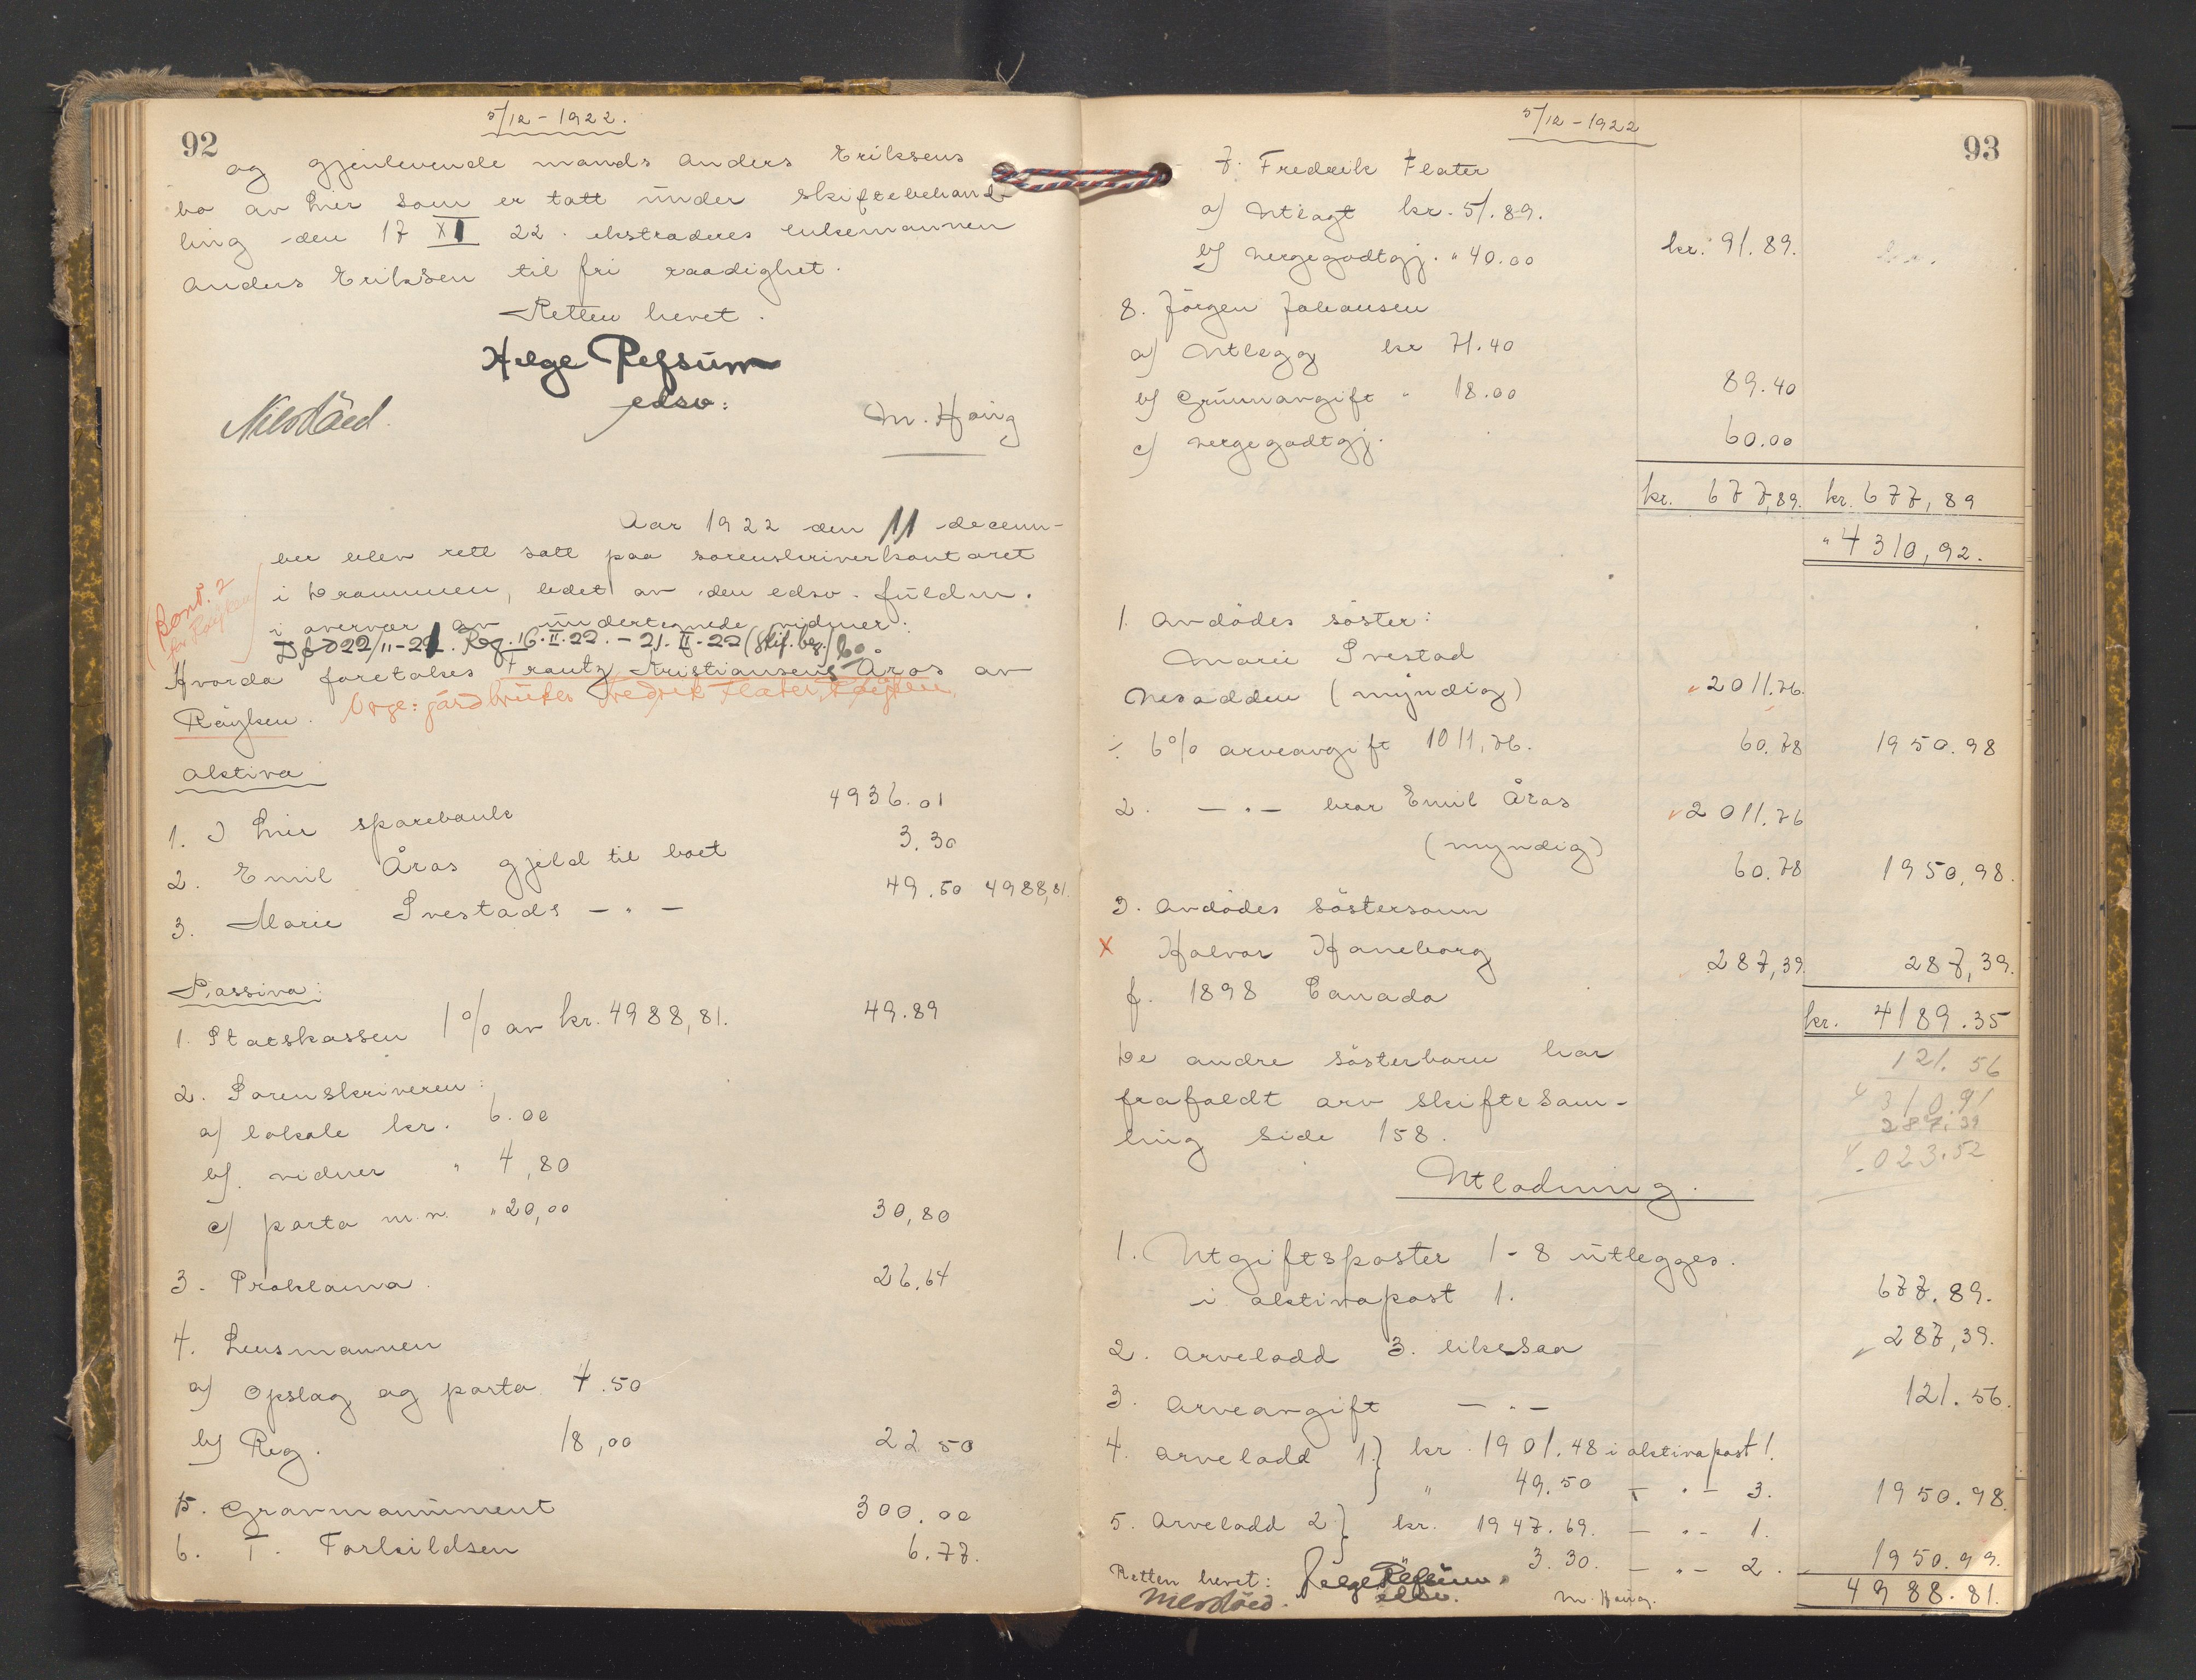 5/12 - 1922.
92
og gjenlevende mands Anders Eriksens
bo av Lier som er tatt under skiftebehand-
ling den 17 XI 22. ekstraderes enkemannen
Anders Eriksen til fri raadighet.
Retten hevet.
Helge Refsum
edsv:
M. Haug
Aar 1922 den 11 decem-
ber blev rett satt paa sorenskriverkontoret
i Drammen, ledet av den edsv. fuldm.
i overvær av undertegnede vidner:
(Bont. 2
for Røyken
Død 22/11-21. Reg. 16.II.22. - 21.II-22 (Skif. beg.) bo.
Hvorda foretokes Frantz Kristiansens Åros av
Røyken. Verge: gårdbruker Fredrik Flater, Røyken.
Aktiva
1. I Lier sparebank 4936.01
2. Emil Åros gjeld til boet 3.30
3. Marie Svestads - " - 49.50 4988,81.
Passiva:
1. Statskassen 1% av kr. 4988,81. 49.89
2. Sorenskriveren:
a) lokale kr. 6.00
b) vidner " 4,80
c) porto m.v. " 20,00 30,80
3. Proklama. 26.64
4. Lensmannen
a) Opslag og porto. 4.50
b) Reg. 18,00 22 50
5. Gravmonument 300.00
6. T. Torkildsen 6.77.
5/12 - 1922
93
7. Fredrik Flater
a) Utlagt kr. 51.89.
b) vergegodtgj. " 40.00 kr. 91.89.
8. Jørgen Johansen
a) Utlegg kr 71.40
b) Grunnavgift " 18.00 89.40
c) vergegodtgj. 60.00
kr. 677,89. kr. 677,89
" 4310,92.
1. Avdødes søster:
Marie Svestad
Nesodden (myndig) 2011.76.
÷ 6% arveavgift 1011,76. 60.78 1950.98
2. - " - bror Emil Åros 2011.76
(myndig)
60.78 1950,98.
3. Avdødes søstersønn
X Halvor Haneborg 287,39. 287,39.
f. 1898 Canada
kr. 4189.35
De andre søsterbarn har
121.56
frafaldt arv skiftesam-
4310.91
287.39
ling side 158.
4.023.52
Utlodning.
1. Utgiftsposter 1-8 utlegges.
i aktivapost 1. 677.89.
2. Arvelodd 3. likesaa 287,39.
3. Arveavgift - " - 121.56.
4. Arvelodd 1.} kr. 1901.48 i aktivapost 1.
" 49.50 - " - 3. 1950.98.
5. Arvelodd 2} kr. 1947.69. - " - 1.
3.30. - " - 2. 1950.99.
Retten hevet: Helge Refsum
edsv.
M. Haug.
4988.81.